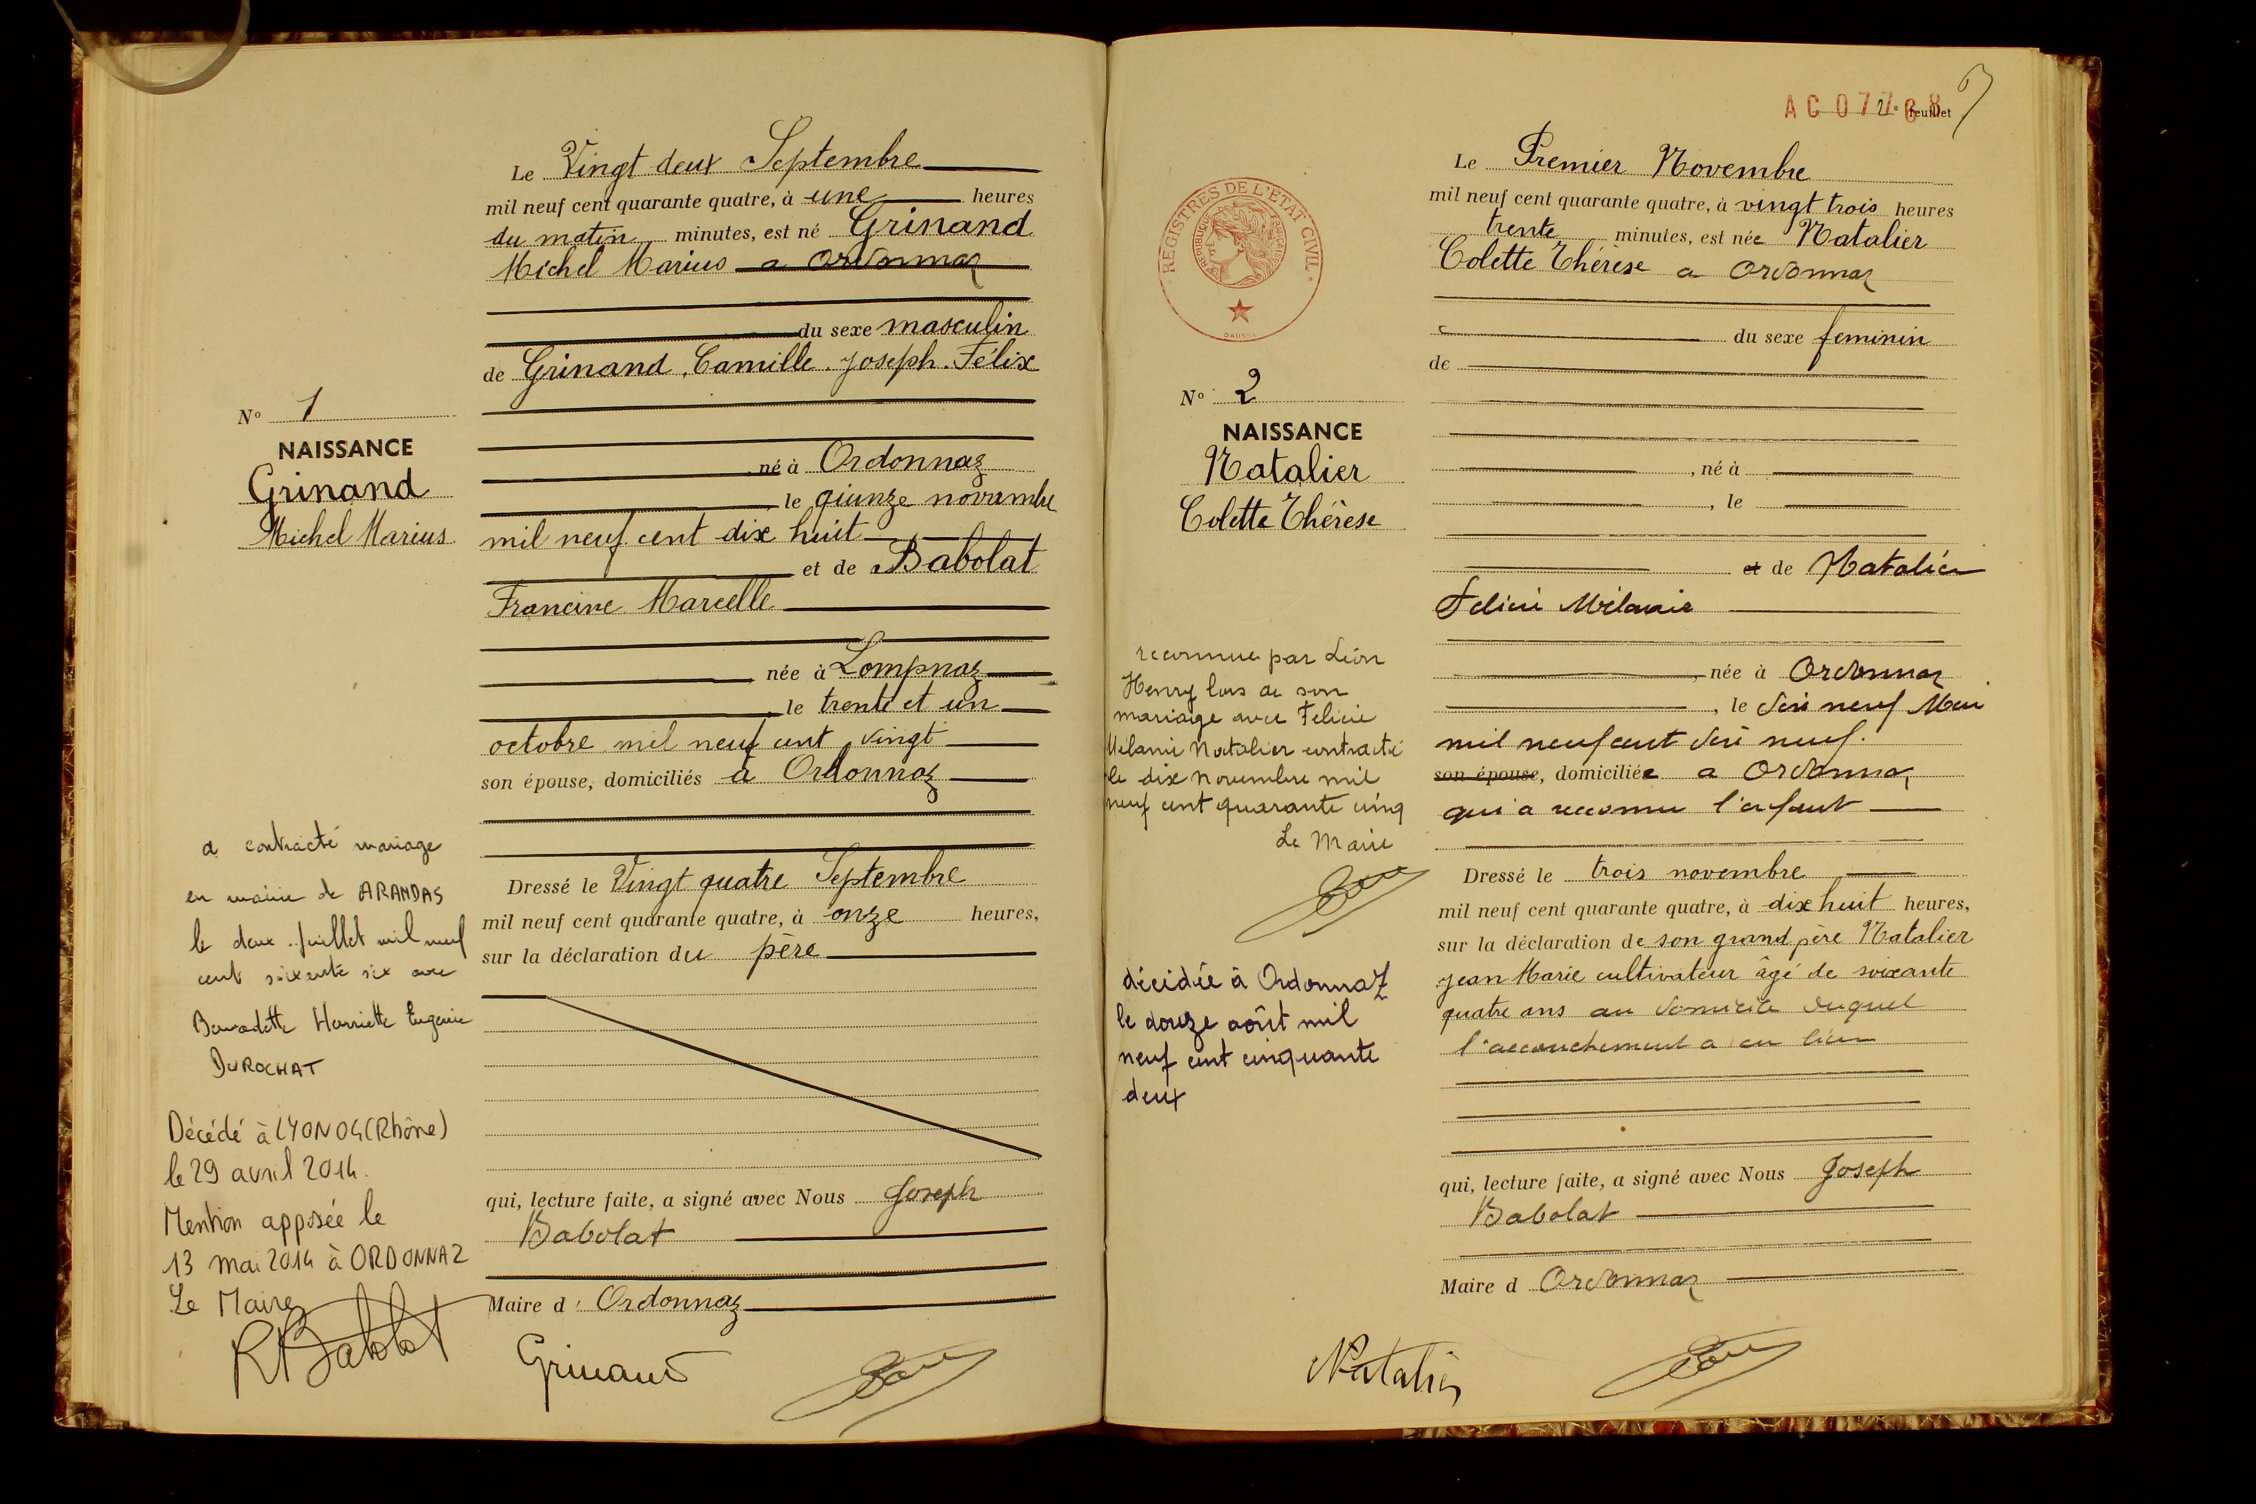 Le Vingt deux Septembre
mil neuf cent quarante quatre, à une heures
du matin minutes, est né Grinand
Michel Marius a Ordonnaz
du sexe masculin
de Grinand Camille Joseph Félix
né à Ordonnaz
le quinze novembre
mil neuf cent dix huit
et de Babolat
Francine Marcelle
née à Lompnaz
le trente et un
octobre mil neuf cent vingt
son épouse, domiciliés à Ordonnaz
Dressé le Vingt quatre Septembre
mil neuf cent quarante quatre, à onze heures,
sur la déclaration du père
qui, lecture faite, a signé avec Nous Joseph
Babolat
Maire d' Ordonnaz
Grinand
No 1
NAISSANCE
Grinand
Michel Marius
a contracté mariage
en mairie de ARANDAS
le deux Juillet mil neuf
cent soixante six avec
Bernadette Henriette Eugenie
DUROCHAT
Décédé à LYON 04 (Rhône)
le 29 avril 2014.
Mention apposée le
13 mai 2014 à ORDONNAZ
Le Maire
RBabolat
AC 07768
2e feuillet
REGISTRES DE L'ETAT CIVIL
REPUBLIQUE FRANÇAISE
No 2
NAISSANCE
Natalier
Colette Thérèse
reconnue par Léon
Henry lors de son
mariage avec Felicie
Melanie Natalier contracté
le dix novembre mil
neuf cent quarante cinq
Le Maire
décédée à Ordonnaz
le douze août mil
neuf cent cinquante
deux
Le Premier Novembre
mil neuf cent quarante quatre, à vingt trois heures
trente minutes, est née Natalier
Colette Thérèse a Ordonnaz
du sexe feminin
de
, né à
, le
et de Natalier
Felicie Mélanie
, née à Ordonnaz
, le dix neuf Mai
mil neuf cent dix neuf.
son épouse, domiciliée a Ordonnaz
qui a reconnu l'enfant
Dressé le trois novembre
mil neuf cent quarante quatre, à dix huit heures,
sur la déclaration de son grand père Natalier
Jean Marie cultivateur âgé de soixante
quatre ans au domicile duquel
l'accouchement a eu lieu
qui, lecture faite, a signé avec Nous Joseph
Babolat
Maire d Ordonnaz
Natalier